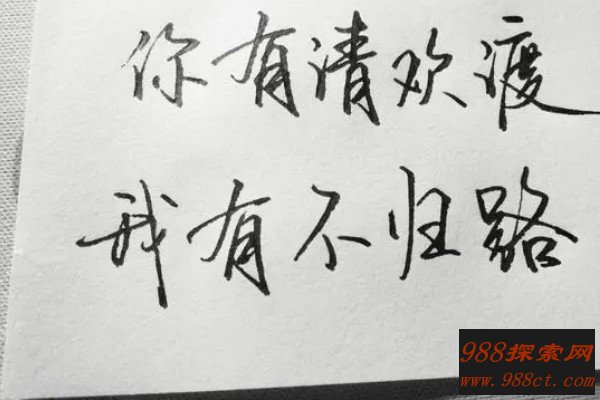 你有清欢渡
我有不归路
988探索网
www.988ct.com